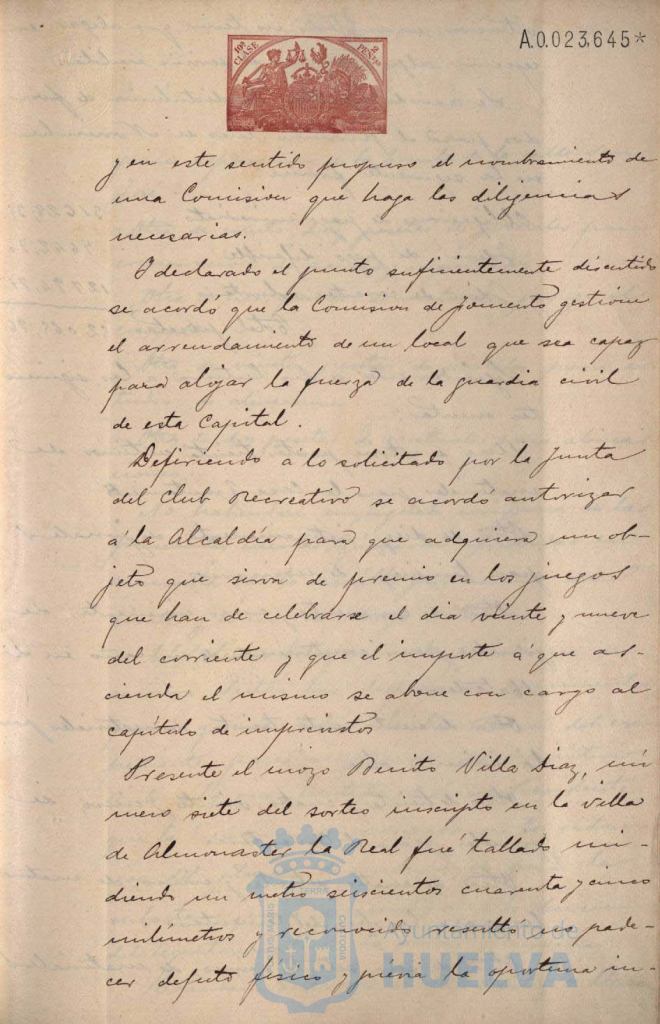 10ª CLASE 2 PESETAS
A.0.023,645*
y en este sentido propuso el nombramiento de
una Comision que haga las diligencias
necesarias.
Y declarado el punto suficientemente discutido
se acordó que la Comision de fomento gestione
el arrendamiento de un local que sea capaz
para alojar la fuerza de la guardia civil
de esta Capital.
Defiriendo á lo solicitado por la Junta
del Club Recreativo se acordó autorizar
á la Alcaldía para que adquiera un ob-
jeto que sirva de premio en los juegos
que han de celebrarse el dia veinte y nueve
del corriente y que el importe á que as-
cienda el mismo se abone con cargo al
capítulo de imprevistos
Presente el mozo Benito Villa Diaz, nú
mero siete del sorteo inscripto en la villa
de Almonaster la Real fué tallado mi-
diendo un metro seiscientos cuarenta y cinco
milímetros y reconocido resultó no pade-
cer defecto físico y previa la oportuna in-
Ayuntamiento de
HUELVA